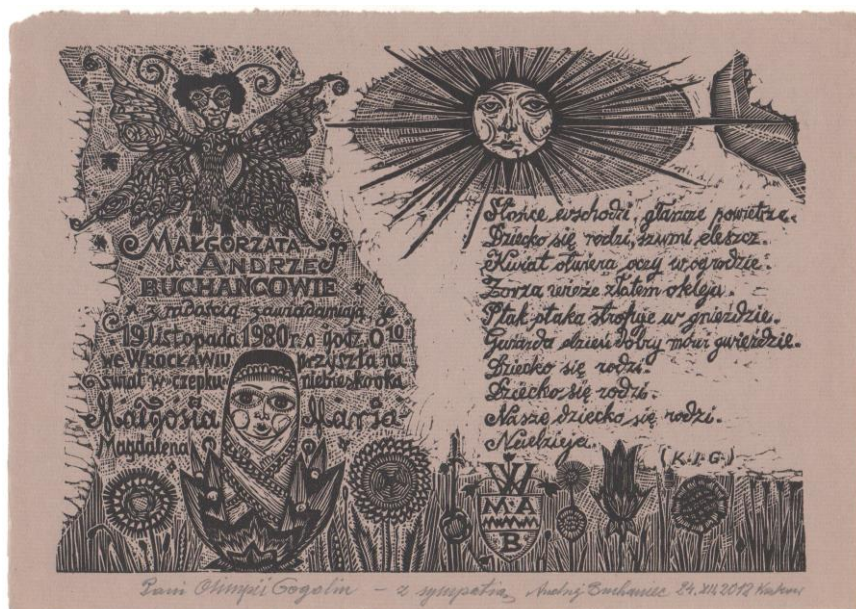 MAŁGORZATA
i ANDRZEJ
BUCHAŃCOWIE
z radością zawiadamiają, że
19 listopada 1980 r. o godz. 0 10
we WROCŁAWIU przyszła na
świat w czepku niebieskooka
Małgosia Maria
Magdalena
Słońce wschodzi, głaszcze powietrze.
Dziecko się rodzi, szumi deszcz.
Kwiat otwiera oczy w ogrodzie.
Zorza wieże złotem okleja.
Ptak ptaka strofuje w gnieździe.
Gwiazda dzień dobry mówi gwieździe.
Dziecko się rodzi.
Dziecko się rodzi.
Nasze dziecko się rodzi.
Nadzieja.
(K.I.G.)
W
M A
B
Pani Olimpii Gogolin – z sympatią, Andrzej Buchaniec 24.XII.2012 Kraków